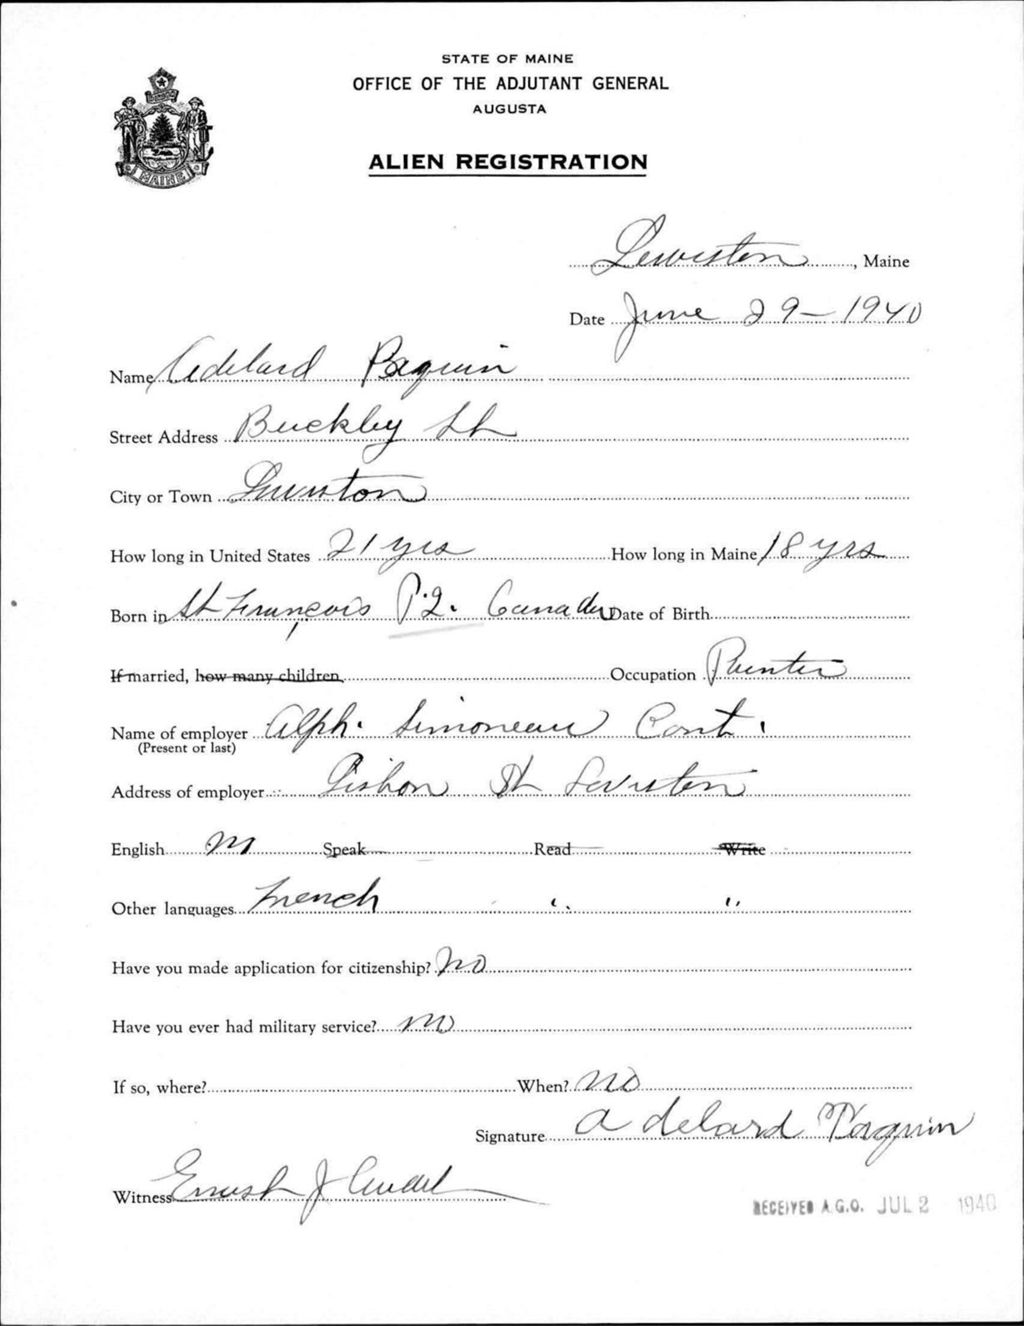 STATE OF MAINE
OFFICE OF THE ADJUTANT GENERAL
AUGUSTA
ALIEN REGISTRATION
MAINE
Lewiston, Maine
Date June 29-1940
Name Adelard Paquin
Street Address Buckley St
City or Town Lewiston
How long in United States 21 yrs How long in Maine 18 yrs
Born in St François P.Q. Canada Date of Birth
If married, how many children Occupation Painter
Name of employer Alph. Simoneau Cont.
(Present or last)
Address of employer Pishon St Lewiston
English No Speak Read Write
Other languages French " "
Have you made application for citizenship? No
Have you ever had military service? No
If so, where? When? No
Signature Adelard Paquin
Witness J
RECEIVED A.G.O. JUL 2 1940